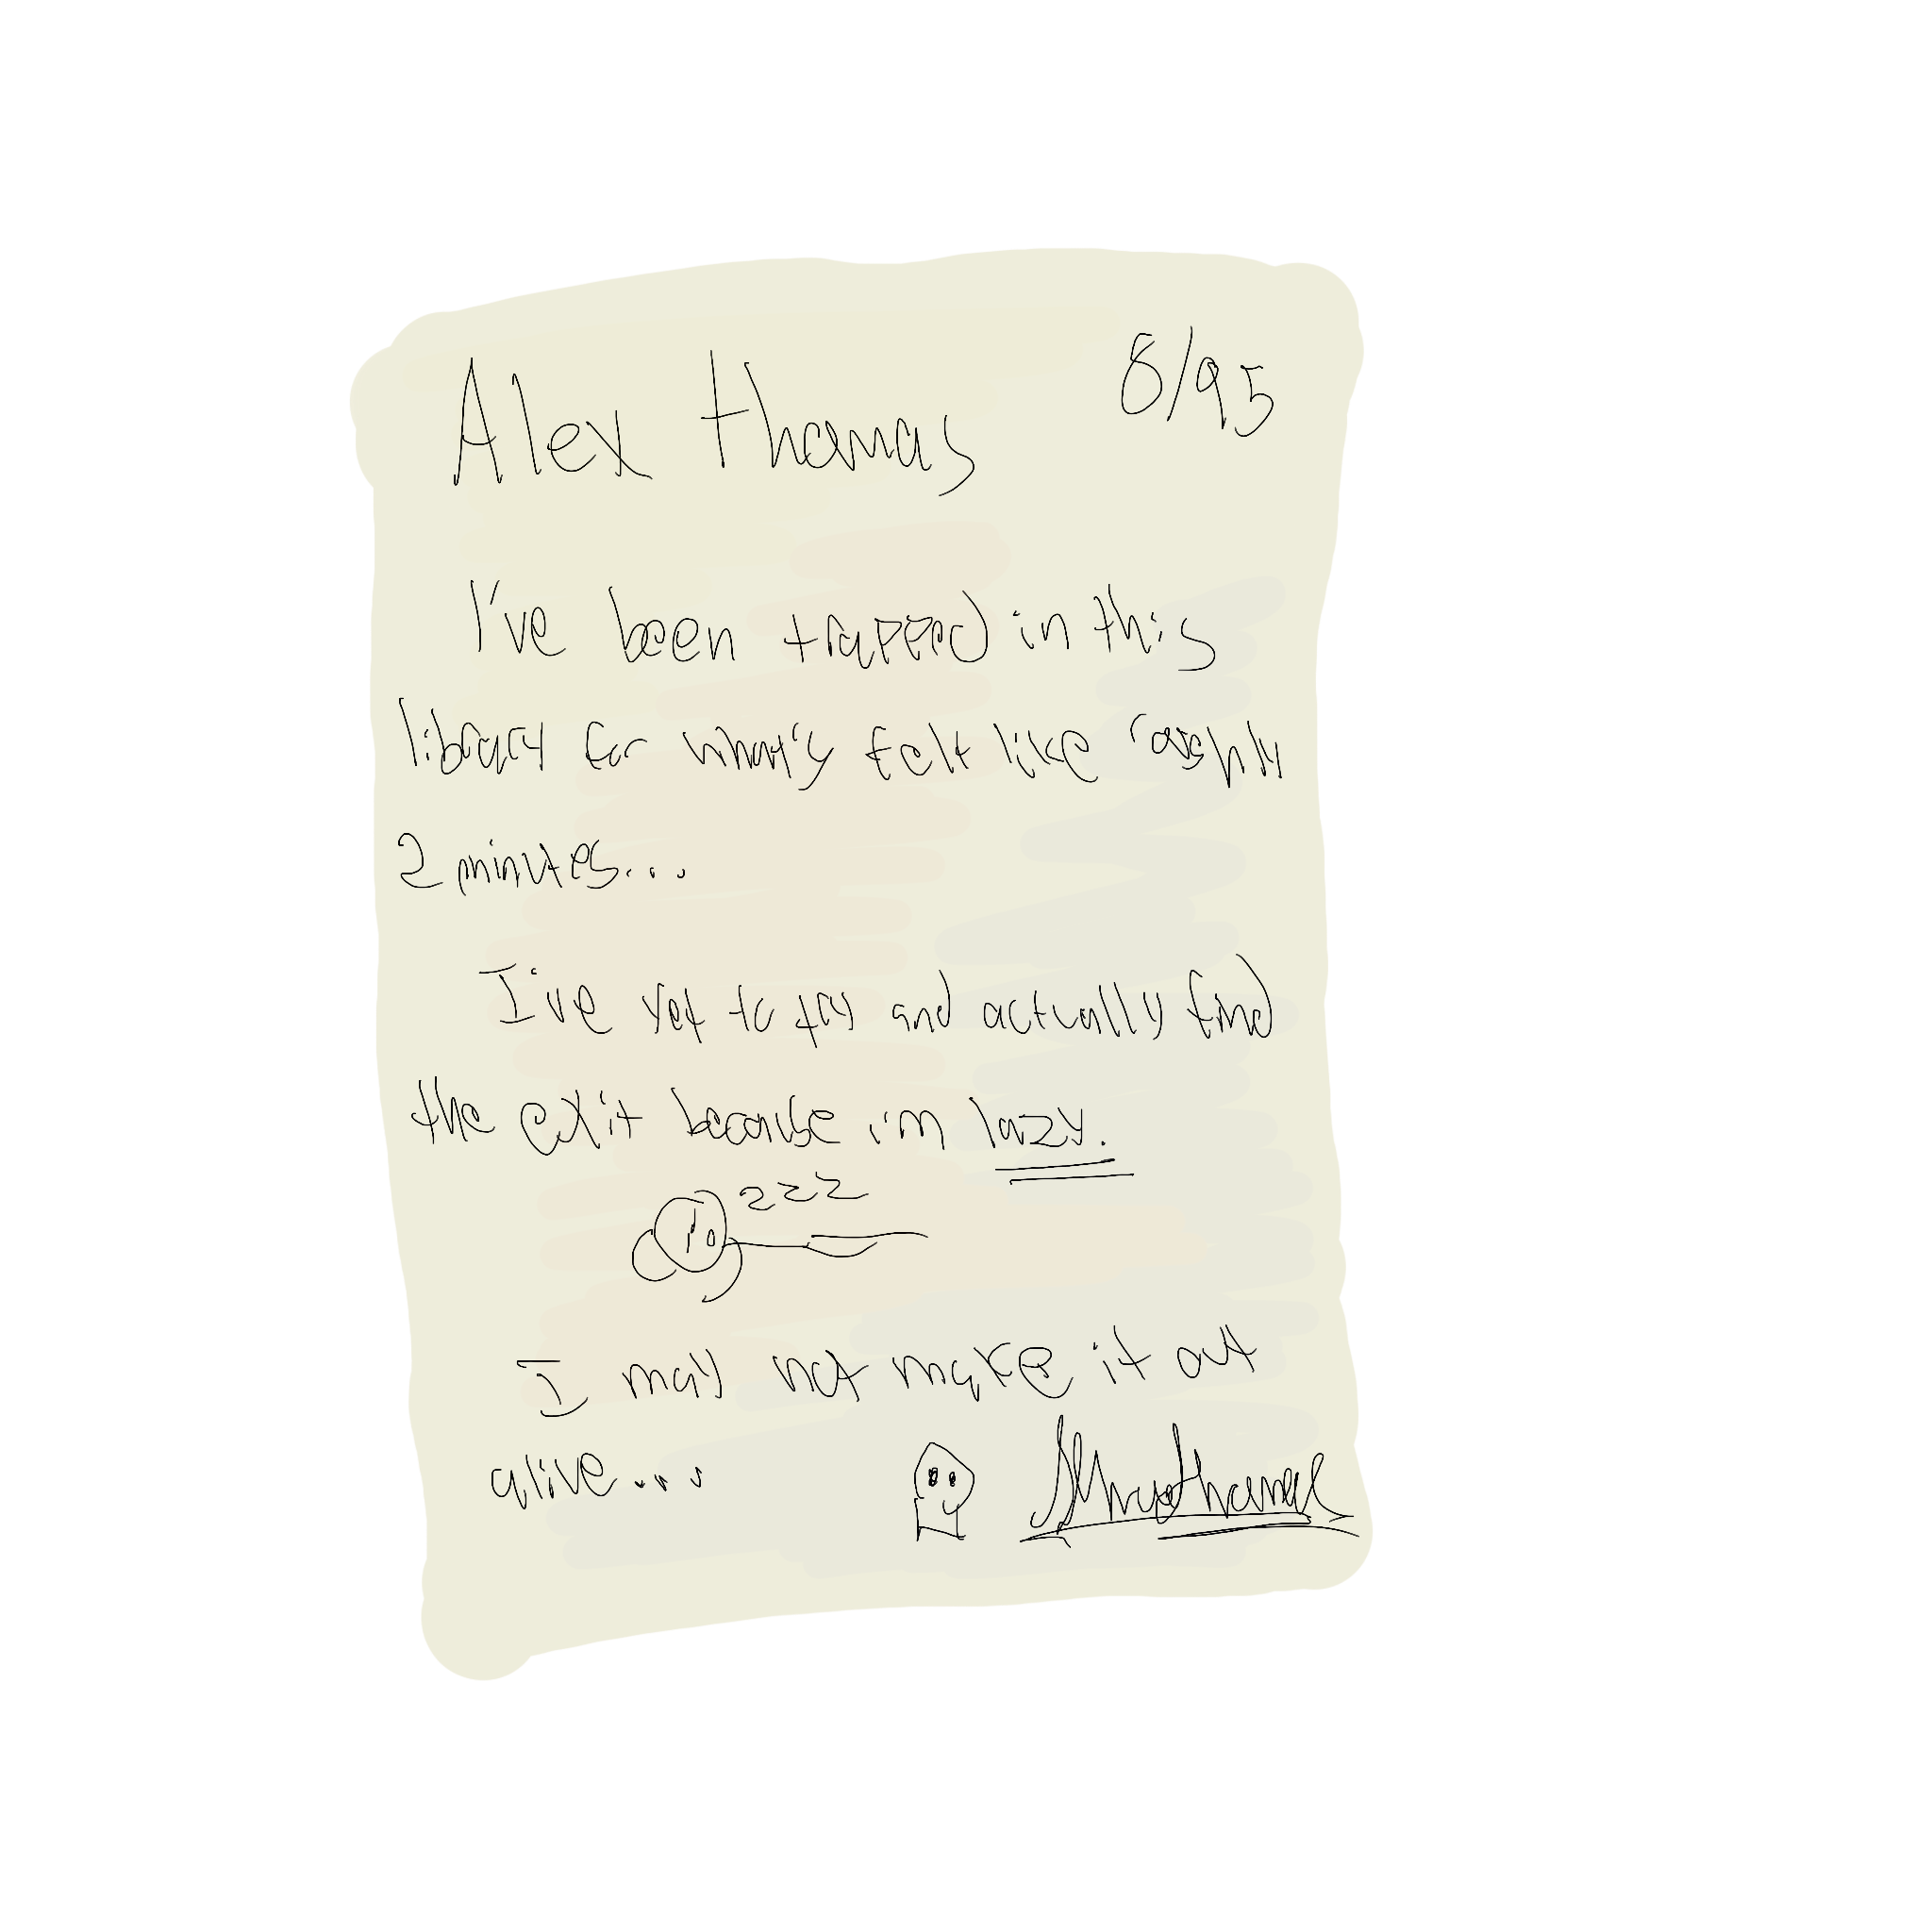 Alex thomas 8/95
I've been trapped in this
library for what's felt like roughly
2 minutes...
I've yet to try and actually find
the exit because i'm lazy.
zzz
I may not make it out
alive....